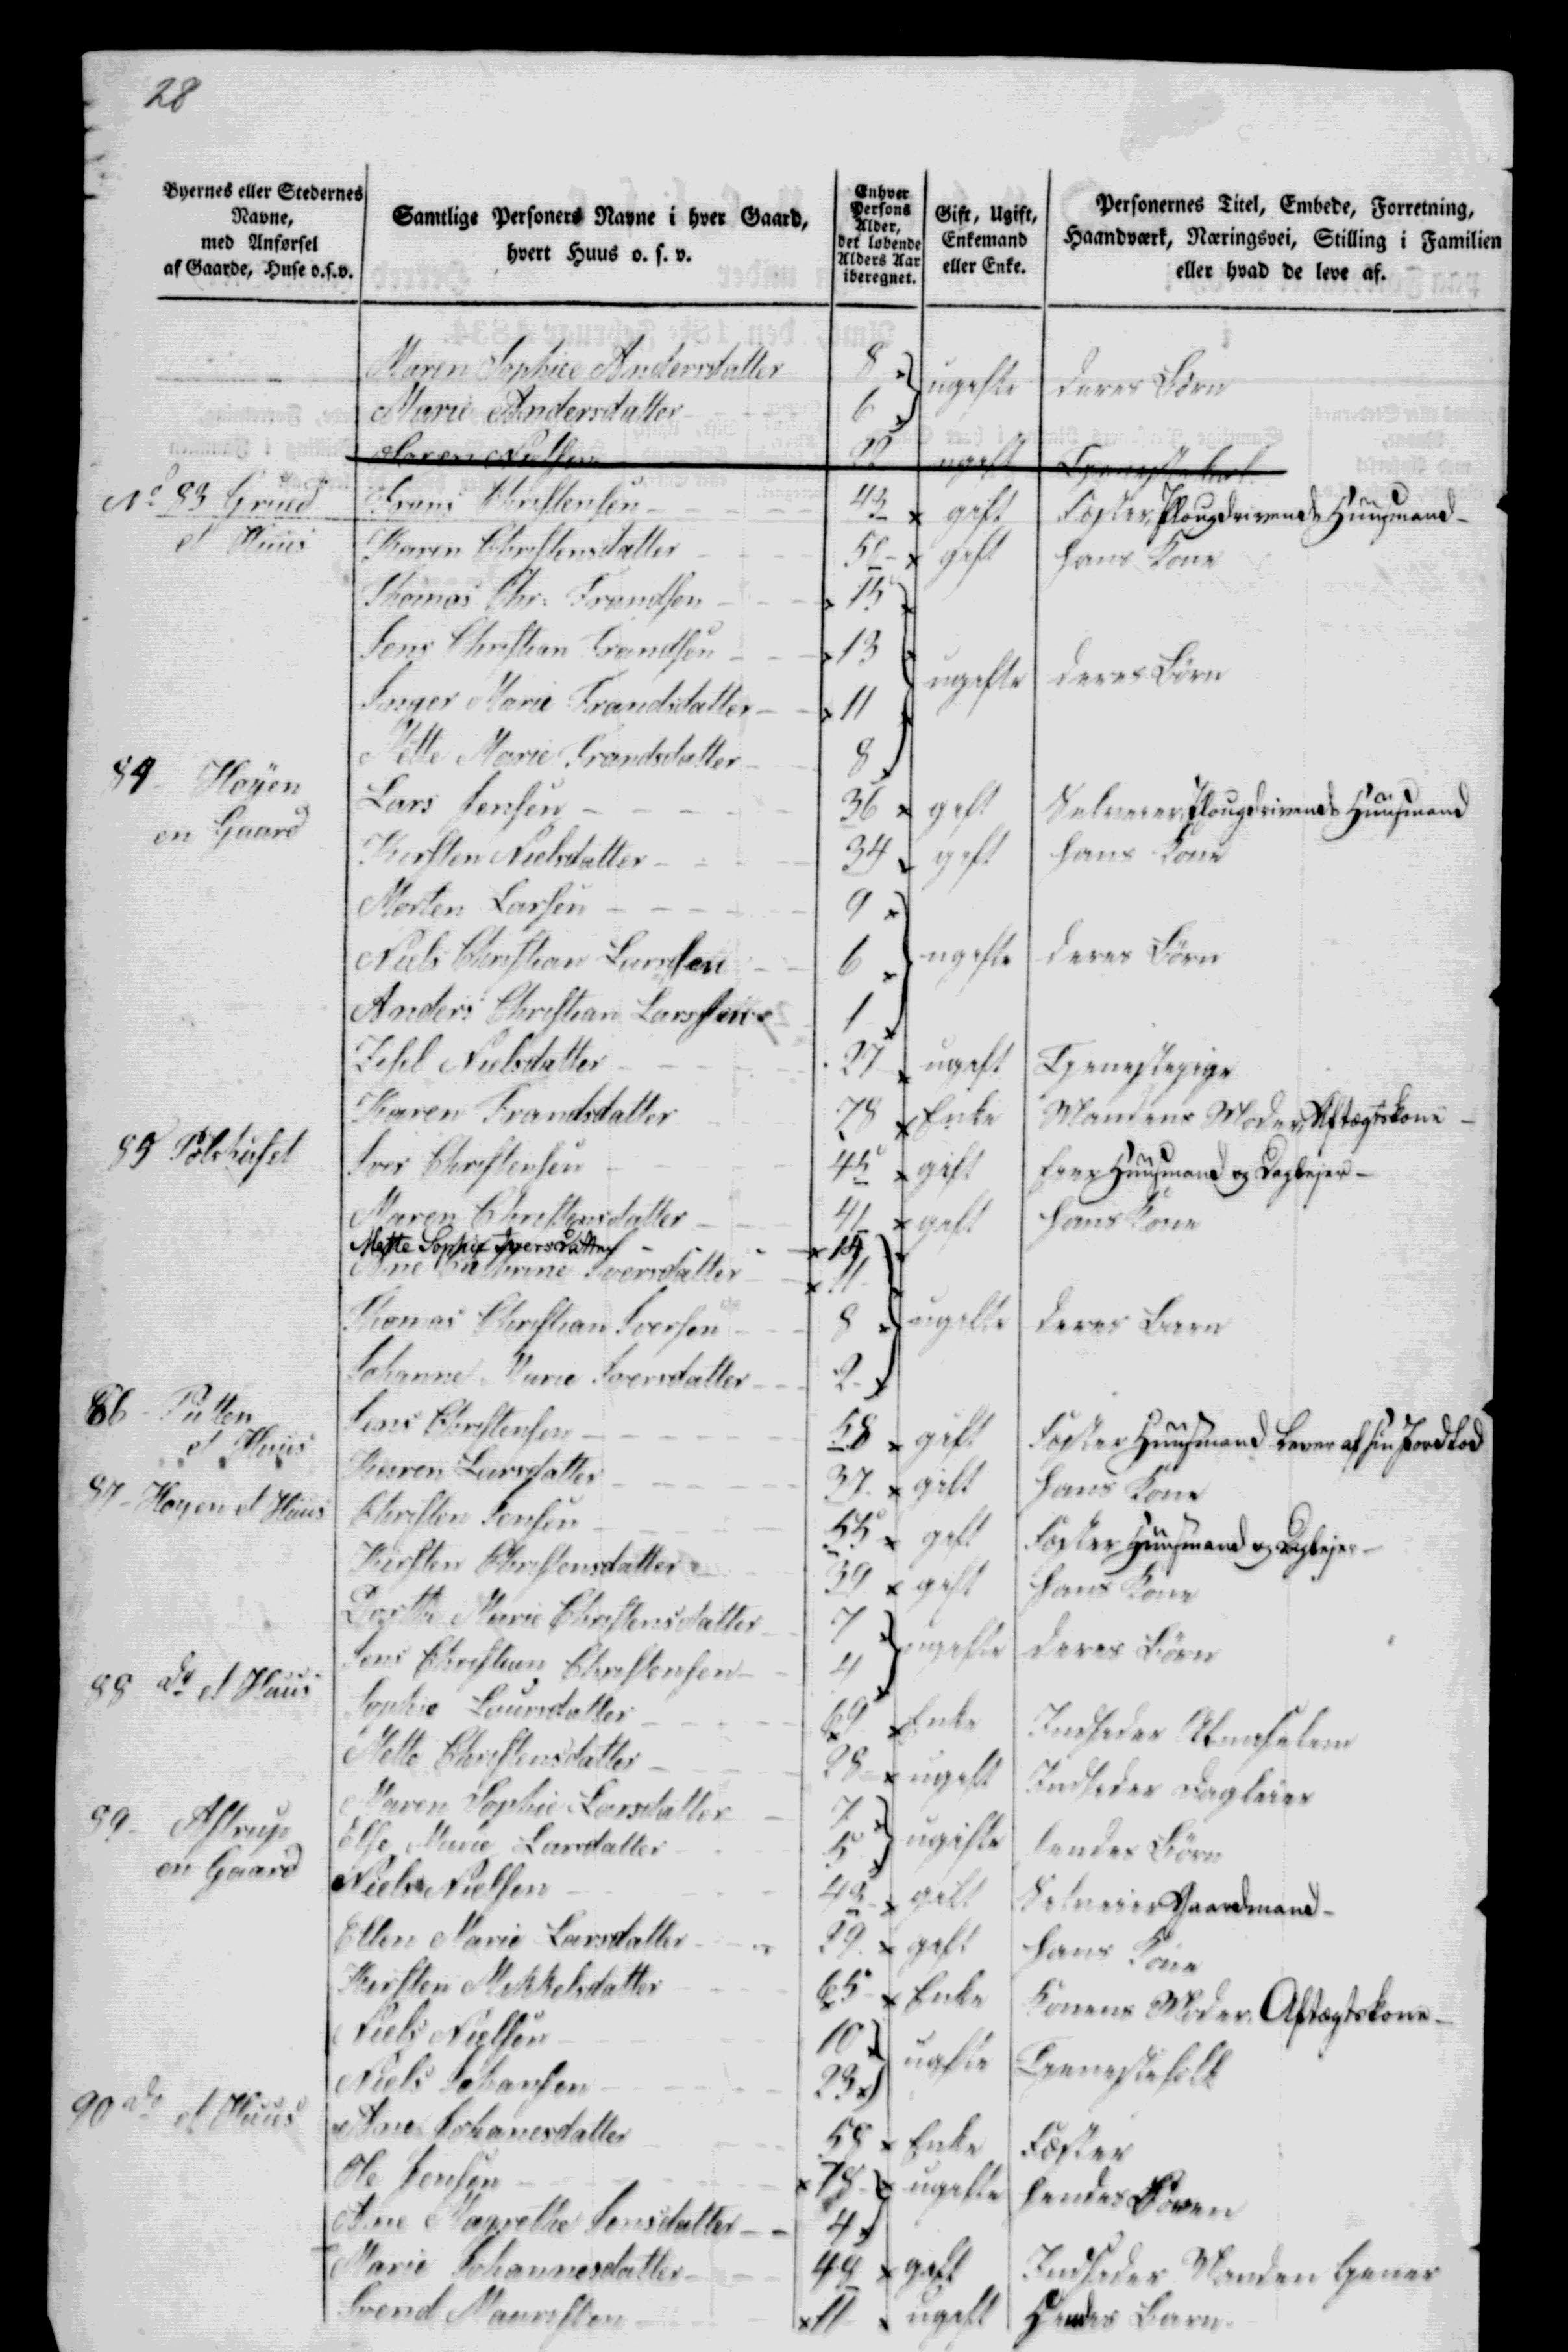 28
Byernes eller Stedernes Navne, med Anførsel af Gaarde, Huse o.s.v. Samtlige Personers Navne i hver Gaard, hvert Huus o. s. v. Enhver Persons Alder, det løbende Alders Aar iberegnet. Gift, Ugift, Enkemand eller Enke. Personernes Titel, Embede, Forretning, Haandværk, Næringsvei, Stilling i Familien eller hvad de leve af.
Maren Sophie Andersdatter 8 ugifte deres Børn
Marie Andersdatter 6
Nielsen 22 ugift
No 83 Grued Frans Christensen 43 gift Fæster, Plougdrivende Huusmand
et Huus Karen Christensdatter 50 gift hans Kone
Thomas Chr: Frandsen 15
Jens Christian Frandsen 13 ugifte deres Børn
Inger Marie Frandsdatter 11
Mette Marie Frandsdatter 8
84 Høyen Lars Jensen 36 gift Selveier, Plougdrivende Huusmand
en Gaard Kirsten Nielsdatter 34 gift hans Kone
Morten Larsen 9
Niels Christian Larssen 6 ugifte deres Børn
Anders Christian Larssen 1
Zidsel Nielsdatter 27 ugift Tjenestepige
Karen Frandsdatter 78 Enke Mandens Moder, Aftægtskone
85 Iver Christensen 45 gift Huusmand og Daglejer
Maren Christensdatter 41 gift hans Kone
Mette Sophie Iversdatter 14
Ane Cathrine Iversdatter 11
Thomas Christian Iversen 8 ugifte deres Børn
Johanne Marie Iversdatter 2
86 Putten Jens Christensen 58 gift Fæster Huusmand Lever af sin Jordlod
et Huus Karen Larsdatter 37 gift hans Kone
87 Høyen et Huus Christen Jensen 55 gift Fæster Huusmand og Daglejer
Kirsten Christensdatter 39 gift hans Kone
Dorthe Marie Christensdatter 7 ugifte deres Børn
Jens Christian Christensen 4
88 do et Huus Sophie Laursdatter 69 Enke Indsider Almisselem
Mette Christensdatter 28 ugift Indsider Dagleier
Maren Sophie Larsdatter 7 ugifte hendes Børn
Else Marie Larsdatter 5
89 Astrup Niels Nielsen 43 gift Selveier Gaardmand
en Gaard Ellen Marie Larsdatter 29 gift hans Kone
Kirsten Mikkelsdatter 65 Enke Konens Moder, Aftægtskone
Niels Nielsen 10 ugifte Tjenestefolk
Niels Johansen 23
90 do et Huus Ane Johanesdatter 58 Enke Fæster
Ole Jensen 18 ugifte hendes Børen
Ane Magrethe Jensdatter 4
Marie Johannesdatter 48 gift Indsider Manden
Svend 11 ugift Hendes Barn